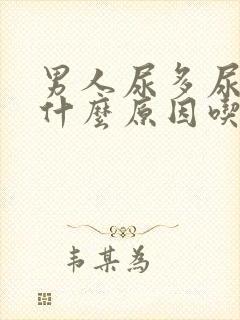 男人尿多尿
什麼原因喫
韦某為